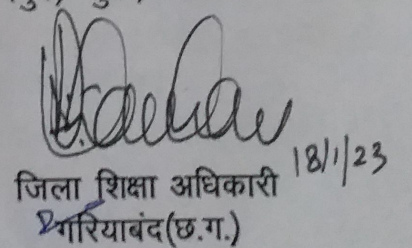 18/1/23
जिला शिक्षा अधिकारी
गरियाबंद (छ.ग.)